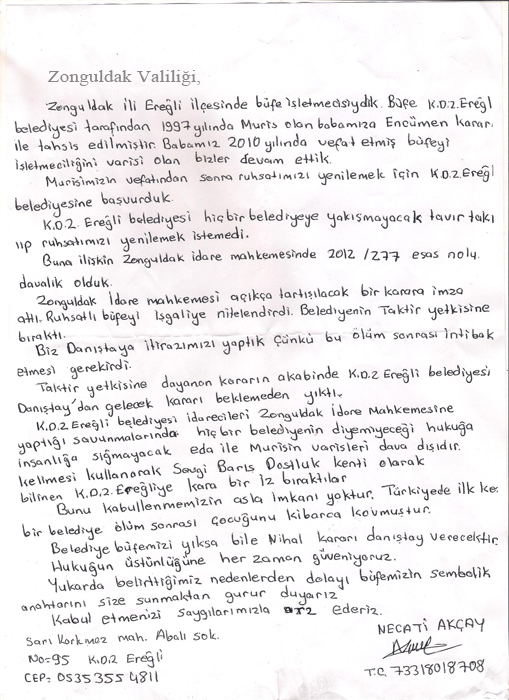 Zonguldak Valiliği,
Zonguldak ili Ereğli ilçesinde büfe işletmecisiydik. Büfe K.D.Z. Ereğl
belediyesi tarafından 1997 yılında Muris olan babamıza Encümen karar.
ile tahsis edilmiştir. Babamız 2010 yılında vefat etmiş büfeyi
işletmeciliğini varisi olan bizler devam ettik.
Murisimizin vefatından sonra ruhsatımızı yenilemek için K.D.Z Ereğl
belediyesine başvurduk.
K.D.Z. Ereğli belediyesi hiçbir belediyeye yakışmayacak tavır takı
nıp ruhsatımızı yenilemek istemedi.
Buna ilişkin Zonguldak idare mahkemesinde 2012/277 esas nolu
davalık olduk.
Zonguldak İdare mahkemesi açıkça tartışılacak bir karara imza
attı. Ruhsatlı büfeyi işgaliye nitelendirdi. Belediyenin Taktir yetkisine
bıraktı.
Biz Danıştaya itirazımızı yaptık Çünkü bu ölüm sonrası intibak
etmesi gerekirdi.
Taktir yetkisine dayanan kararın akabinde K.D.Z Ereğli belediyesi
Danıştay'dan gelecek kararı beklemeden yıktı.
K.D.Z Ereğli belediyesi idarecileri Zonguldak İdare Mahkemesine
yaptığı savunmalarında hiçbir belediyenin diyemiyeceği hukuğa
insanlığa sığmayacak eda ile Murisin varisleri dava dışıdır.
kelimesi kullanarak Sevgi Barış Dostluk kenti olarak
bilinen K.D.Z. Ereğliye kara bir iz bıraktılar
Bunu kabullenmemizin asla imkanı yoktur. Türkiyede ilk ke.
bir belediye ölüm sonrası çocuğunu kibarca kovmuştur.
Belediye büfemizi yıksa bile Nihal kararı danıştay verecektir
Hukuğun üstünlüğüne her zaman güveniyoruz.
Yukarda belirttiğimiz nedenlerden dolayı büfemizin sembolik
anahtarını size sunmaktan gurur duyarız
Kabul etmenizi saygılarımızla arz ederiz.
Sarı Korkmaz mah. Abalı sok.
No=95 K.D.Z Ereğli
CEP: 0535 355 4811
NECATİ AKÇAY
T.C. 73318018708